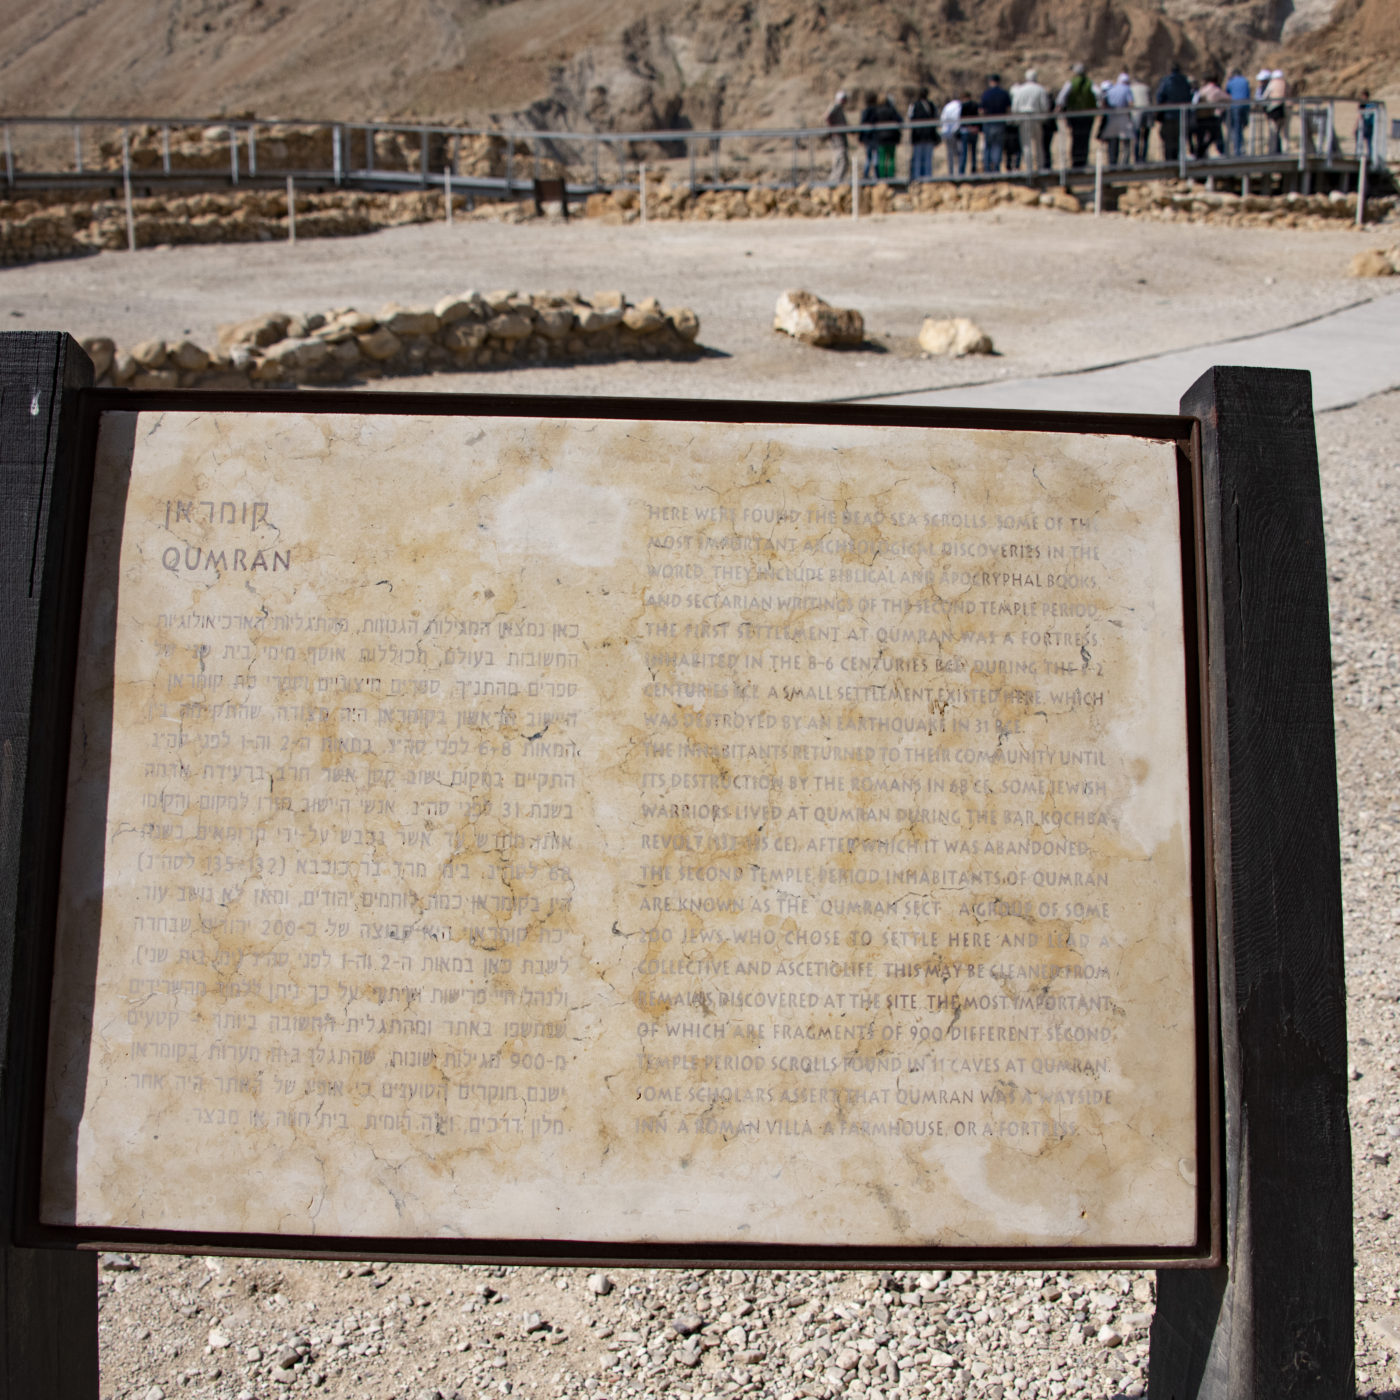 קומראן
QUMRAN
כאן נמצאו המגילות הגנוזות, מהתגליות הארכיאולוגיות
החשובות בעולם, מכוללות אוסף מימי בית שני של
ספרים מהתנ"ך, ספרים חיצוניים וספרי כת קומראן
היישוב הראשון בקומראן היה מצודה, שהתקיימה בין
המאות 6-8 לפני סה"נ. במאות ה-2 וה-1 לפני סה"נ
התקיים במקום ישוב קטן אשר חרב ברעידת אדמה
בשנת 31 לפני סה"נ. אנשי היישוב חזרו למקום והקימו
אותו מחדש עד אשר נכבש על-ידי הרומאים בשנת
68 לסה"נ. בימי מרד בר כוכבא (132-135 לסה"נ)
חיו בקומראן כמה לוחמים יהודים, ומאז לא נושב עוד
"כת קומראן" היא קבוצה של כ-200 יהודים שבחרה
לשבת כאן במאות ה-2 וה-1 לפני סה"נ (ימי בית שני),
ולנהל חיי פרישות ושיתוף. על כך ניתן ללמוד מהשרידים
שנחשפו באתר ומהתגלית החשובה ביותר - קטעים
מ-900 מגילות שונות, שהתגלו ב-11 מערות בקומראן
ישנם חוקרים הטוענים כי אופיו של האתר היה אחר
מלון דרכים, וילה רומית, בית חווה או מבצר.
HERE WERE FOUND THE DEAD SEA SCROLLS, SOME OF THE
MOST IMPORTANT ARCHEOLOGICAL DISCOVERIES IN THE
WORLD. THEY INCLUDE BIBLICAL AND APOCRYPHAL BOOKS
AND SECTARIAN WRITINGS OF THE SECOND TEMPLE PERIOD.
THE FIRST SETTLEMENT AT QUMRAN WAS A FORTRESS
INHABITED IN THE 8-6 CENTURIES BCE. DURING THE 1-2
CENTURIES BCE A SMALL SETTLEMENT EXISTED HERE, WHICH
WAS DESTROYED BY AN EARTHQUAKE IN 31 BCE.
THE INHABITANTS RETURNED TO THEIR COMMUNITY UNTIL
ITS DESTRUCTION BY THE ROMANS IN 68 CE. SOME JEWISH
WARRIORS LIVED AT QUMRAN DURING THE BAR KOCHBA
REVOLT (132-135 CE), AFTER WHICH IT WAS ABANDONED.
THE SECOND TEMPLE PERIOD INHABITANTS OF QUMRAN
ARE KNOWN AS THE "QUMRAN SECT", A GROUP OF SOME
200 JEWS WHO CHOSE TO SETTLE HERE AND LEAD A
COLLECTIVE AND ASCETIC LIFE. THIS MAY BE CLEANED FROM
REMAINS DISCOVERED AT THE SITE, THE MOST IMPORTANT
OF WHICH ARE FRAGMENTS OF 900 DIFFERENT SECOND
TEMPLE PERIOD SCROLLS FOUND IN 11 CAVES AT QUMRAN.
SOME SCHOLARS ASSERT THAT QUMRAN WAS A WAYSIDE
INN, A ROMAN VILLA, A FARMHOUSE, OR A FORTRESS.